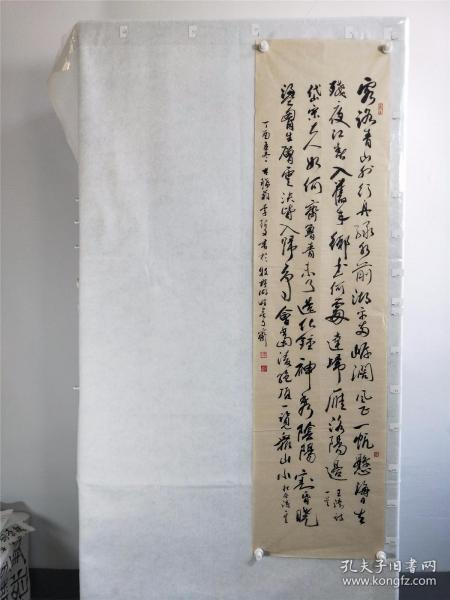 客路青山外行舟綠水前潮平兩岸闊風正一帆懸海日生
殘夜江春入舊年鄉書何處達歸雁洛陽邊王灣詩一首
岱宗夫如何齊魯青未了造化鍾神秀陰陽割昏曉
盪胸生層雲決眥入歸鳥會當凌絕頂一覽衆山小
丁酉 李 書於
孔夫子旧书网
www.kongfz.com